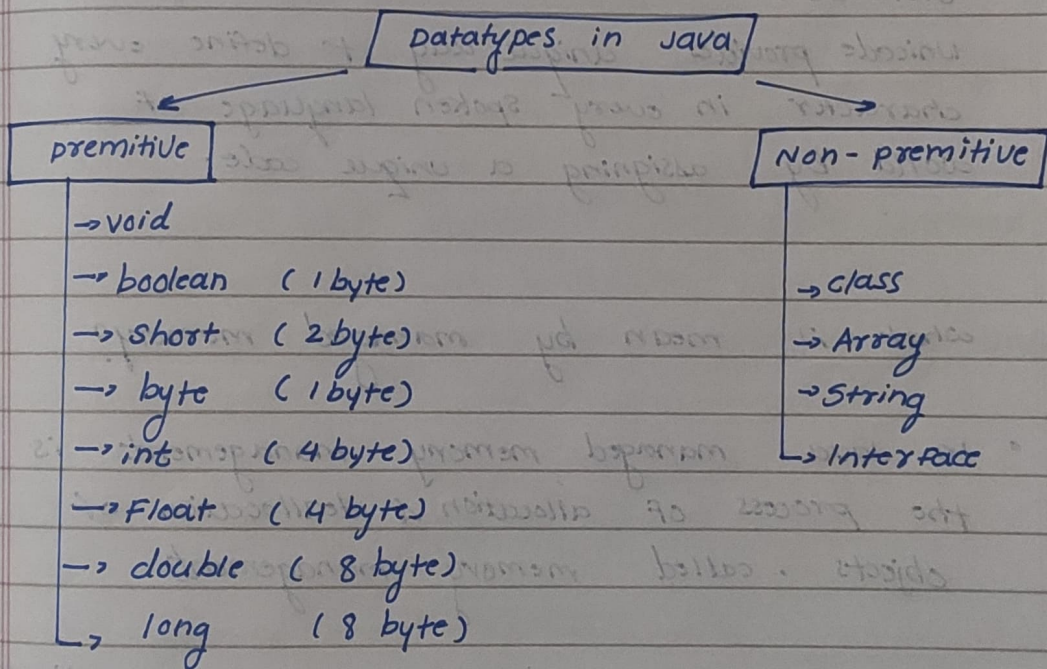 Datatypes in Java
premitive
Non-premitive
→ void
→ boolean (1 byte)
→ short (2 byte)
→ byte (1 byte)
→ int (4 byte)
→ Float (4 byte)
→ double (8 byte)
→ long (8 byte)
→ class
→ Array
→ String
→ Interface